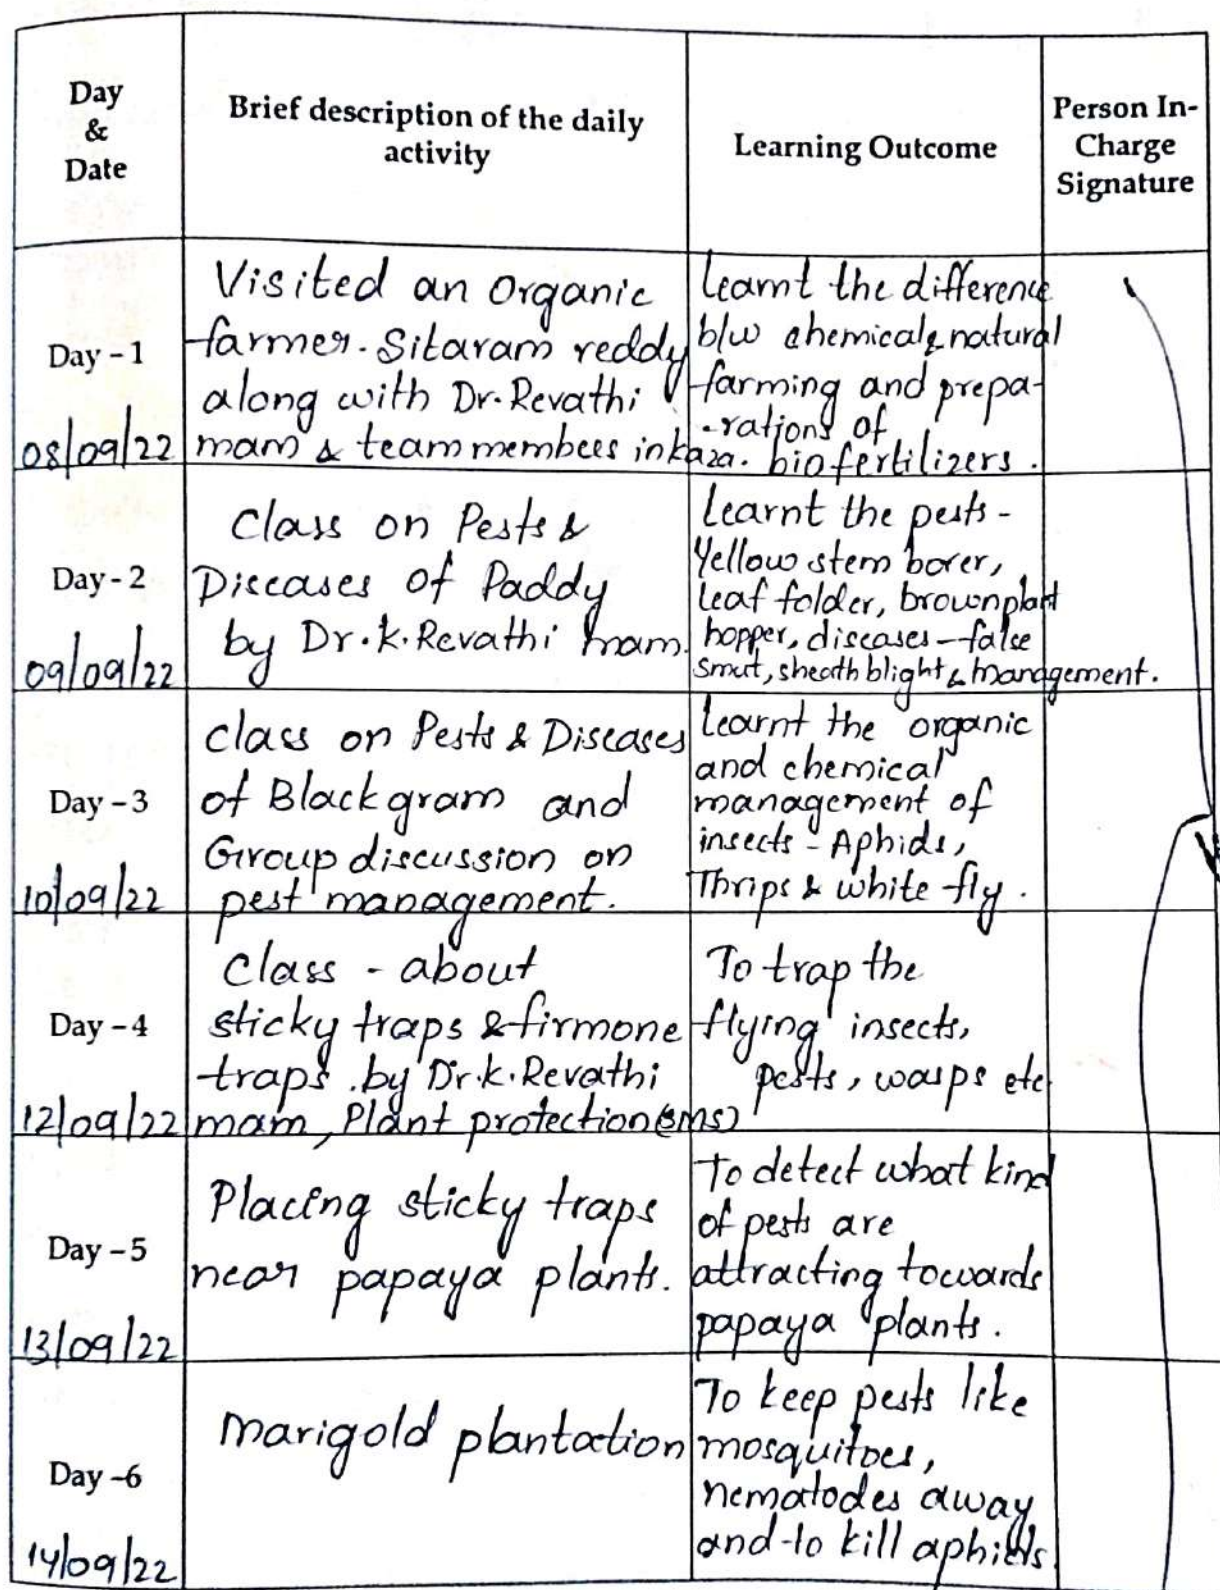 Day
&
Date
Brief description of the daily
activity
Learning Outcome
Person In-
Charge
Signature
Day - 1
08/09/22
Visited an Organic
farmer. Sitaram reddy
along with Dr. Revathi
mam & team members in kaza.
learnt the difference
b/w chemical & natural
farming and prepa-
-rations of
biofertilizers.
Day - 2
09/09/22
Class on Pests &
Diseases of Paddy
by Dr. K. Revathi mam.
Learnt the pests -
Yellow stem borer,
leaf folder, brown plant
hopper, diseases - false
smut, sheath blight & management.
Day - 3
10/09/22
Class on Pests & Diseases
of Blackgram and
Group discussion on
pest management.
Learnt the organic
and chemical
management of
insects - Aphids,
Thrips & white fly.
Day - 4
12/09/22
Class - about
sticky traps & firmone
traps. by Dr. K. Revathi
mam, Plant protection (SMS)
To trap the
flying insects,
pests, wasps etc
Day - 5
13/09/22
Placing sticky traps
near papaya plants.
To detect what kind
of pests are
attracting towards
papaya plants.
Day - 6
14/09/22
Marigold plantation
To keep pests like
mosquitoes,
nematodes away
and to kill aphids.